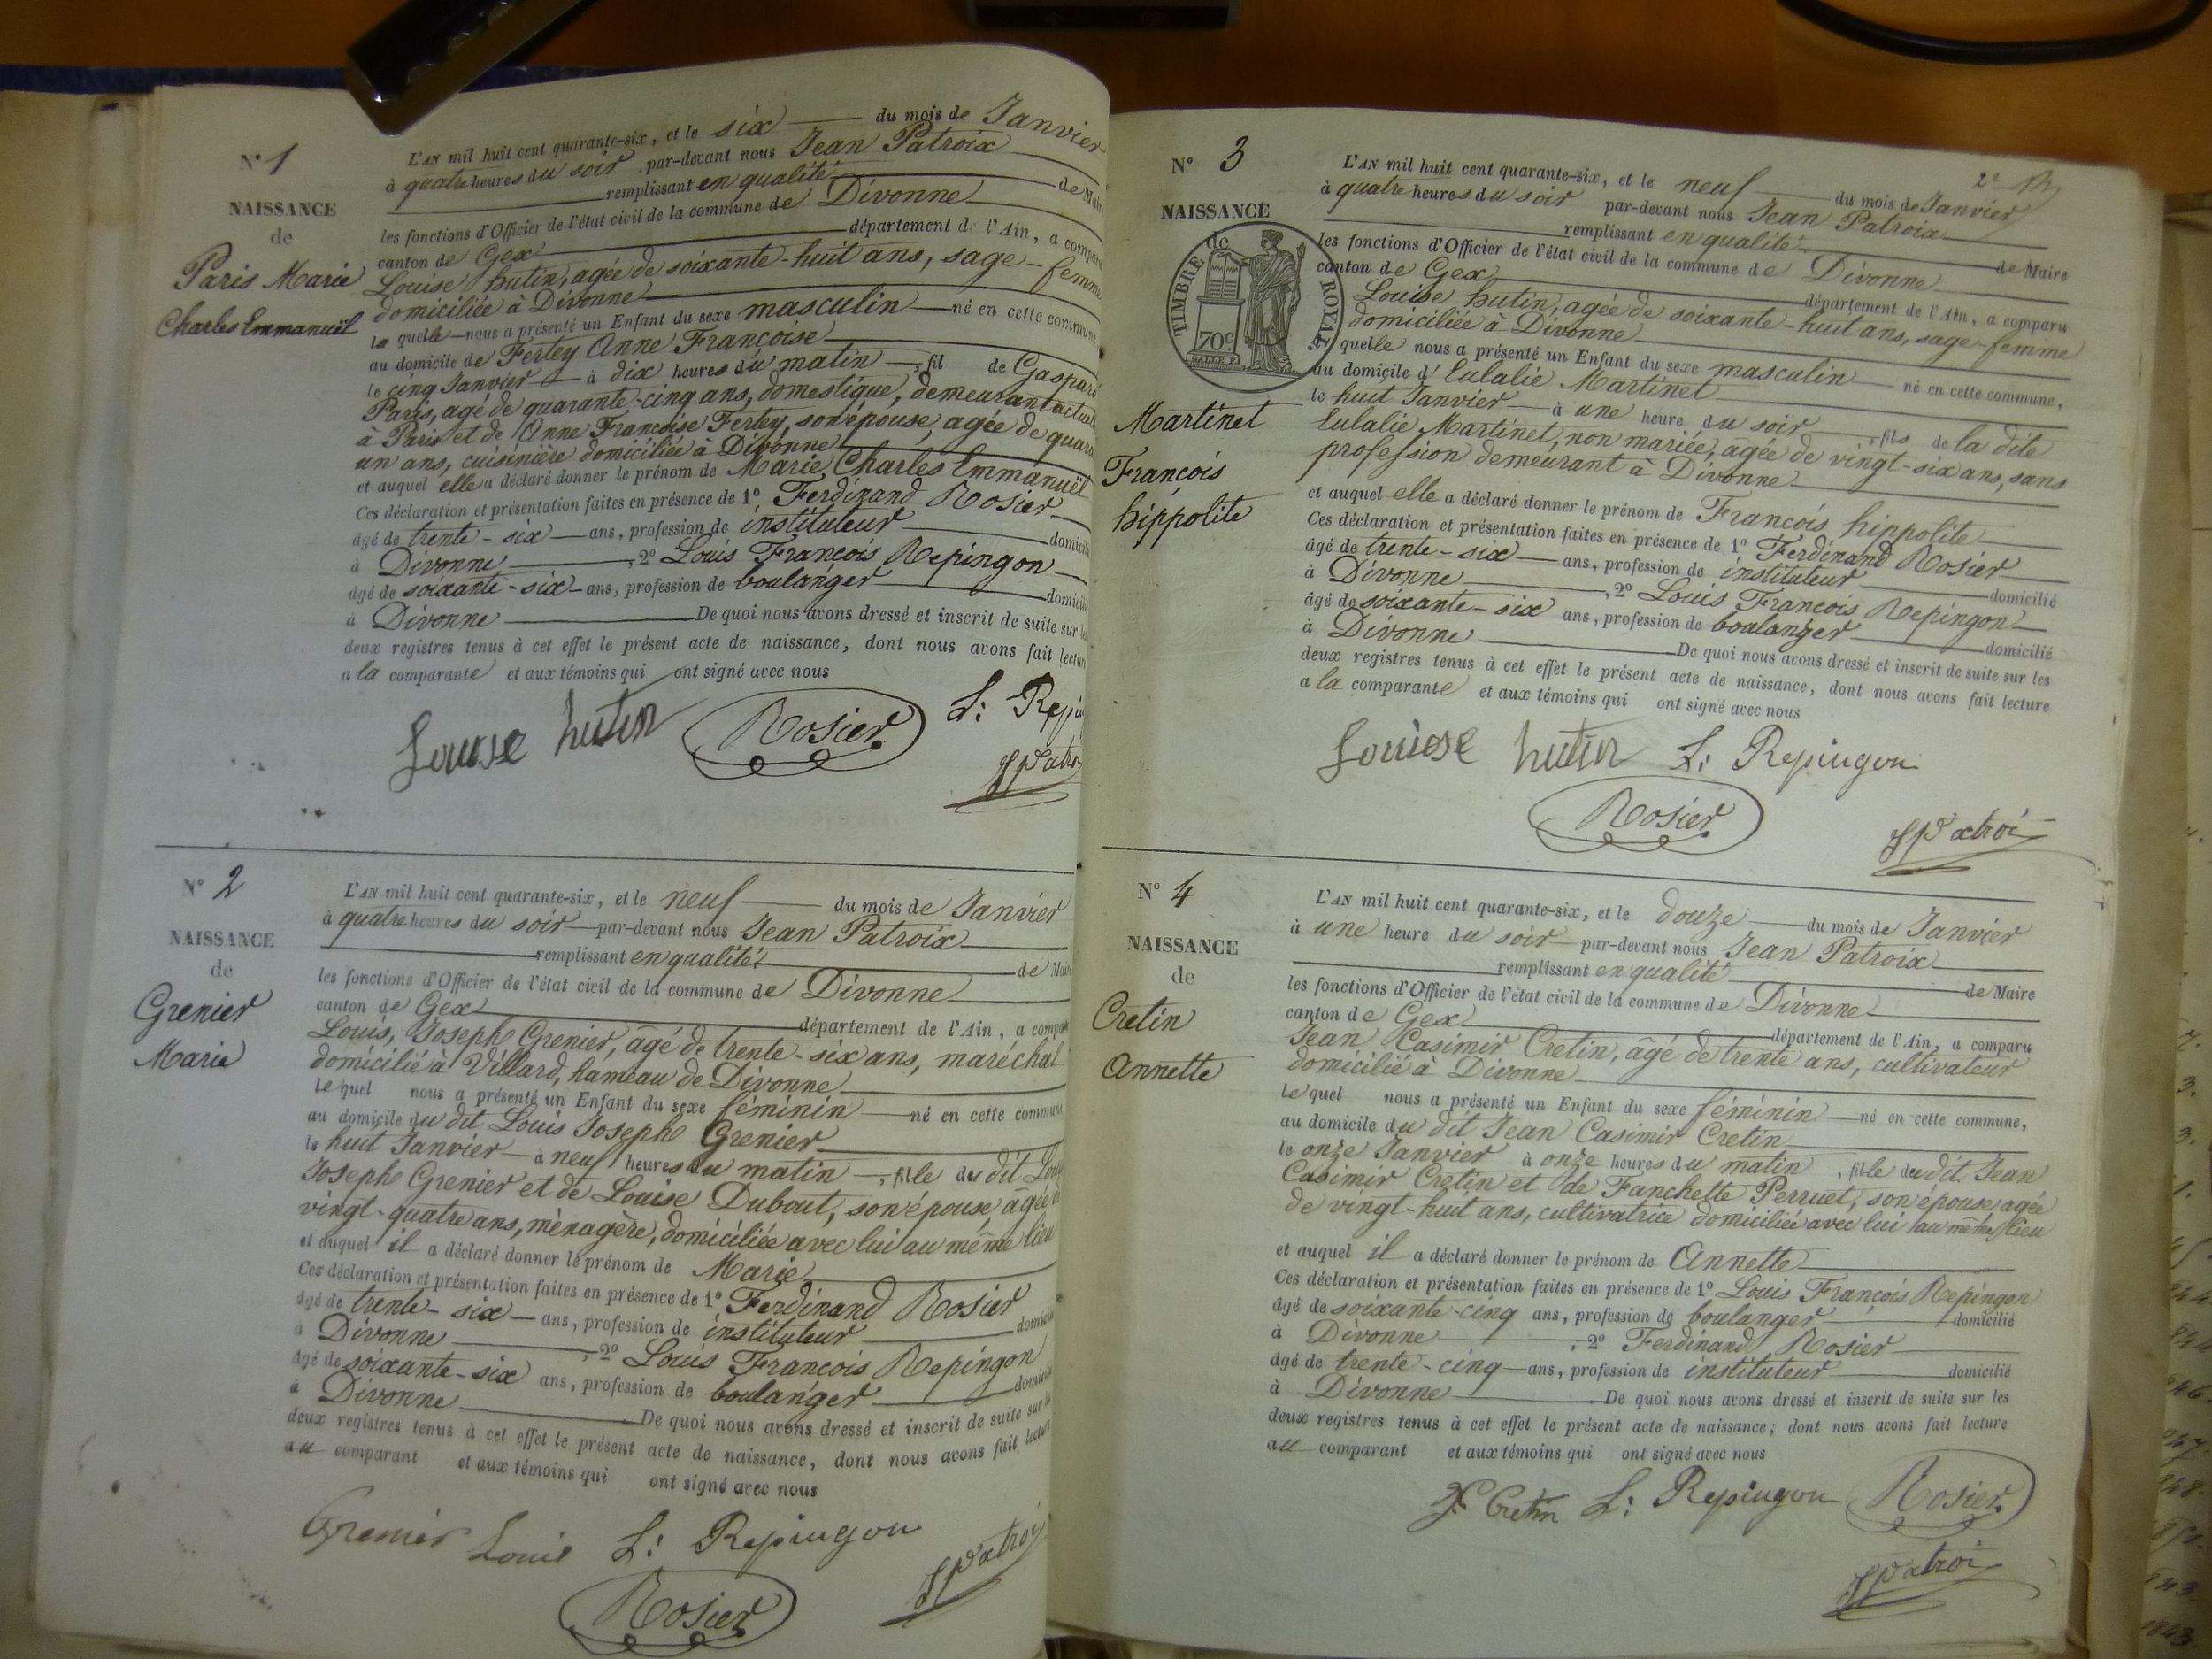 N° 1
NAISSANCE
de
Paris Marie
Charles Emmanuël
L'AN mil huit cent quarante-six, et le six du mois de Janvier
à quatre heures du soir par-devant nous Jean Patroix
remplissant en qualité de Maire
les fonctions d'Officier de l'état civil de la commune de Divonne
canton de Gex département de l'Ain, a comparu
Louise hutin, agée de soixante-huit ans, sage-femme
domiciliée à Divonne
la quelle nous a présenté un Enfant du sexe masculin né en cette commune
au domicile de Fertey Anne Françoise
le cinq Janvier à dix heures du matin, fil de Gaspard
Paris, agé de quarante-cinq ans, domestique, demeurant
à Paris et de Anne Françoise Fertey, son épouse, agée de
un ans, cuisinière domiciliée à Divonne
et auquel elle a déclaré donner le prénom de Marie Charles Emmanuël
Ces déclaration et présentation faites en présence de 1° Ferdinand Rosier
âgé de trente-six ans, profession de instituteur
à Divonne, 2° Louis François Repingon
âgé de soixante-six ans, profession de boulanger
à Divonne De quoi nous avons dressé et inscrit de suite sur
deux registres tenus à cet effet le présent acte de naissance, dont nous avons fait
a la comparante et aux témoins qui ont signé avec nous
Louise hutin Rosier L: Repin
JPatroi
N° 2
NAISSANCE
de
Grenier
Marie
L'AN mil huit cent quarante-six, et le neuf du mois de Janvier
à quatre heures du soir par-devant nous Jean Patroix
remplissant en qualité de
les fonctions d'Officier de l'état civil de la commune de Divonne
canton de Gex département de l'Ain, a
Louis, Joseph Grenier, âgé de trente-six ans, maréchal
domicilié à Villard, hameau de Divonne
le quel nous a présenté un Enfant du sexe féminin né en cette commune
au domicile du dit Louis Joseph Grenier
le huit Janvier à neuf heures du matin, fille du dit Louis
Joseph Grenier et de Louise Dubout, son épouse agée de
vingt-quatre ans, ménagère, domiciliée avec lui au même lieu
et auquel il a déclaré donner le prénom de Marie
Ces déclaration et présentation faites en présence de 1° Ferdinand Rosier
âgé de trente-six ans, profession de instituteur
à Divonne, 2° Louis François Repingon
âgé de soixante-six ans, profession de boulanger
à Divonne De quoi nous avons dressé et inscrit de suite sur
deux registres tenus à cet effet le présent acte de naissance, dont nous avons fait
au comparant et aux témoins qui ont signé avec nous
Grenier Louis L: Repingon
JPatroi
Rosier
2e
N° 3
NAISSANCE
de
TIMBRE ROYAL
70c
Martinet
François
hippolite
L'AN mil huit cent quarante-six, et le neuf du mois de Janvier
à quatre heures du soir par-devant nous Jean Patroix
remplissant en qualité de Maire
les fonctions d'Officier de l'état civil de la commune de Divonne
canton de Gex département de l'Ain, a comparu
Louise hutin, agée de soixante-huit ans, sage-femme
domiciliée à Divonne
quelle nous a présenté un Enfant du sexe masculin né en cette commune,
au domicile d'Eulalie Martinet
le huit Janvier à une heure du soir, fils de la dite
Eulalie Martinet, non mariée, âgée de vingt-six ans, sans
profession demeurant à Divonne
et auquel elle a déclaré donner le prénom de François hippolite
Ces déclaration et présentation faites en présence de 1° Ferdinand Rosier
âgé de trente-six ans, profession de instituteur domicilié
à Divonne, 2° Louis François Repingon
âgé de soixante-six ans, profession de boulanger domicilié
à Divonne De quoi nous avons dressé et inscrit de suite sur les
deux registres tenus à cet effet le présent acte de naissance, dont nous avons fait lecture
a la comparante et aux témoins qui ont signé avec nous
Louise hutin L: Repingon
Rosier
JPatroi
N° 4
NAISSANCE
de
Cretin
Annette
L'AN mil huit cent quarante-six, et le douze du mois de Janvier
à une heure du soir par-devant nous Jean Patroix
remplissant en qualité de Maire
les fonctions d'Officier de l'état civil de la commune de Divonne
canton de Gex département de l'Ain, a comparu
Jean Casimir Cretin, âgé de trente ans, cultivateur
domicilié à Divonne
le quel nous a présenté un Enfant du sexe féminin né en cette commune,
au domicile du dit Jean Casimir Cretin
le onze Janvier à onze heures du matin, fille du dit Jean
Casimir Cretin et de Fanchette Perruet, son épouse agée
de vingt-huit ans, cultivatrice domiciliée avec lui au même lieu
et auquel il a déclaré donner le prénom de Annette
Ces déclaration et présentation faites en présence de 1° Louis François Repingon
âgé de soixante-cinq ans, profession de boulanger domicilié
à Divonne, 2° Ferdinand Rosier
âgé de trente-cinq ans, profession de instituteur domicilié
à Divonne De quoi nous avons dressé et inscrit de suite sur les
deux registres tenus à cet effet le présent acte de naissance; dont nous avons fait lecture
au comparant et aux témoins qui ont signé avec nous
Cretin L: Repingon Rosier
JPatroi